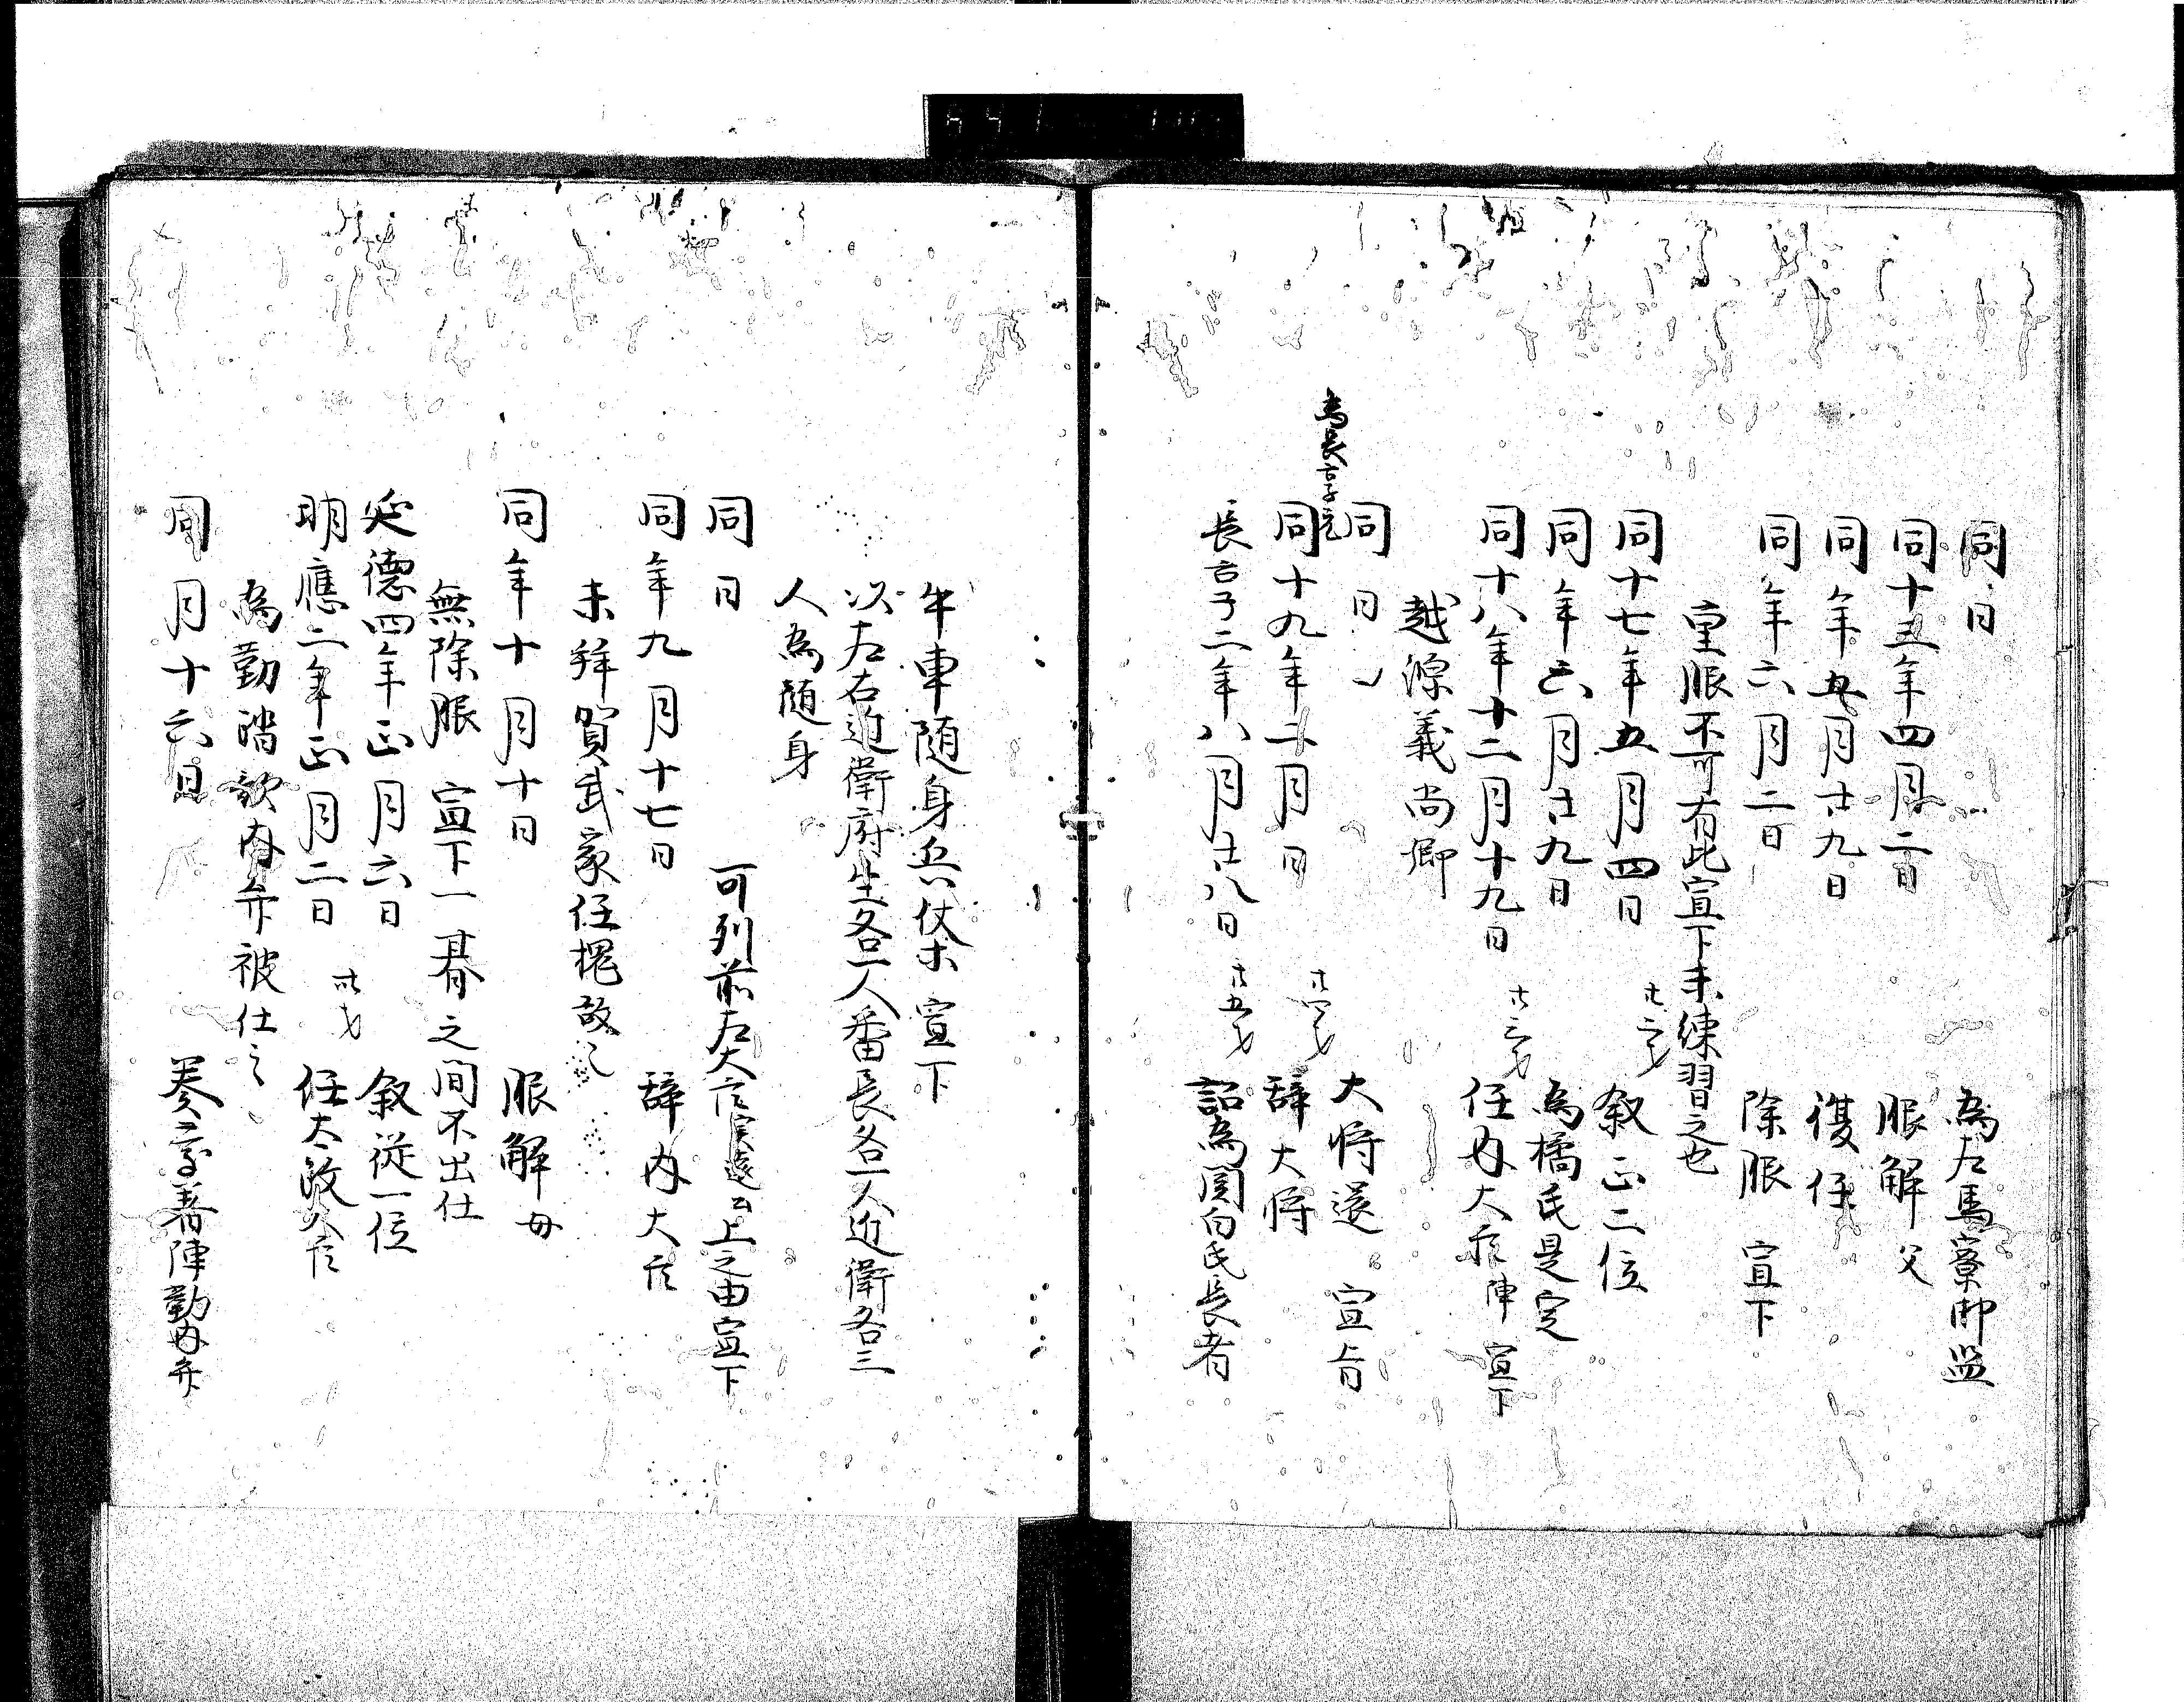 同日 為左馬寮御監
同十五年四月二日 服解父
同年五月廿九日 復任
同年六月二日 除服 宣下
重服不可有此宣下未練習之也
同十七年五月四日 廿二才 叙正二位
同年六月廿九日 為橘氏是定
同十八年十二月十九日 廿三才 任内大臣陣宣下
越源義尚卿
同日 大将還 宣旨
為長享元
同十九年二月日 廿四才 辞大将
長享二年八月廿八日 廿五才 詔為関白氏長者
牛車随身兵仗宣下
以左右近衛府生各一人番長各一人近衛各三
人為随身
同日 可列前左大臣上之由宣下
同年九月十七日 辞内大臣
未拝賀武家任槐故之
同年十月十日 服解母
無除服 宣下一暮之間不出仕
延徳四年正月六日 叙従一位
明應二年正月二日 卅才 任太政大臣
為勤踏歌内弁被仕之
同月十六日 奏慶著陣勤内弁